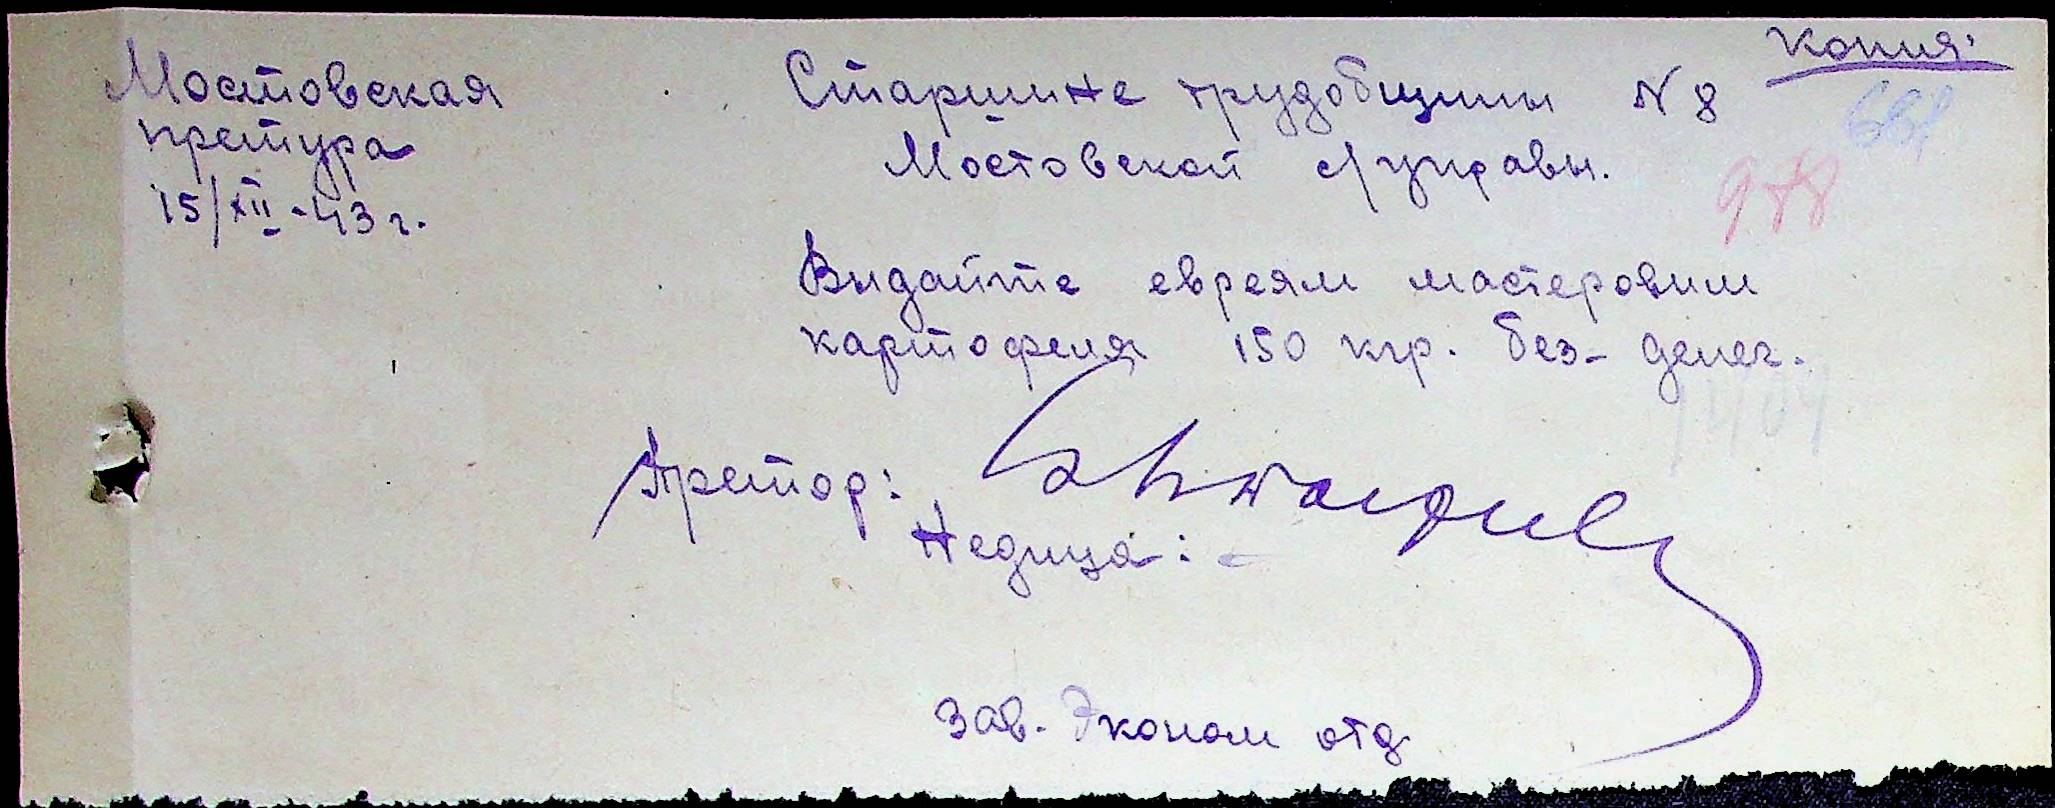 Копия:
Мостовская
претура
15/XII-43 г.
Старшине трудобщины N 8
Мостовской с/управы.
978
Выдайте евреям мастеровым
картофеля 150 кгр. без- денег.
Претор:
Недица:
Зав. Эконом отд